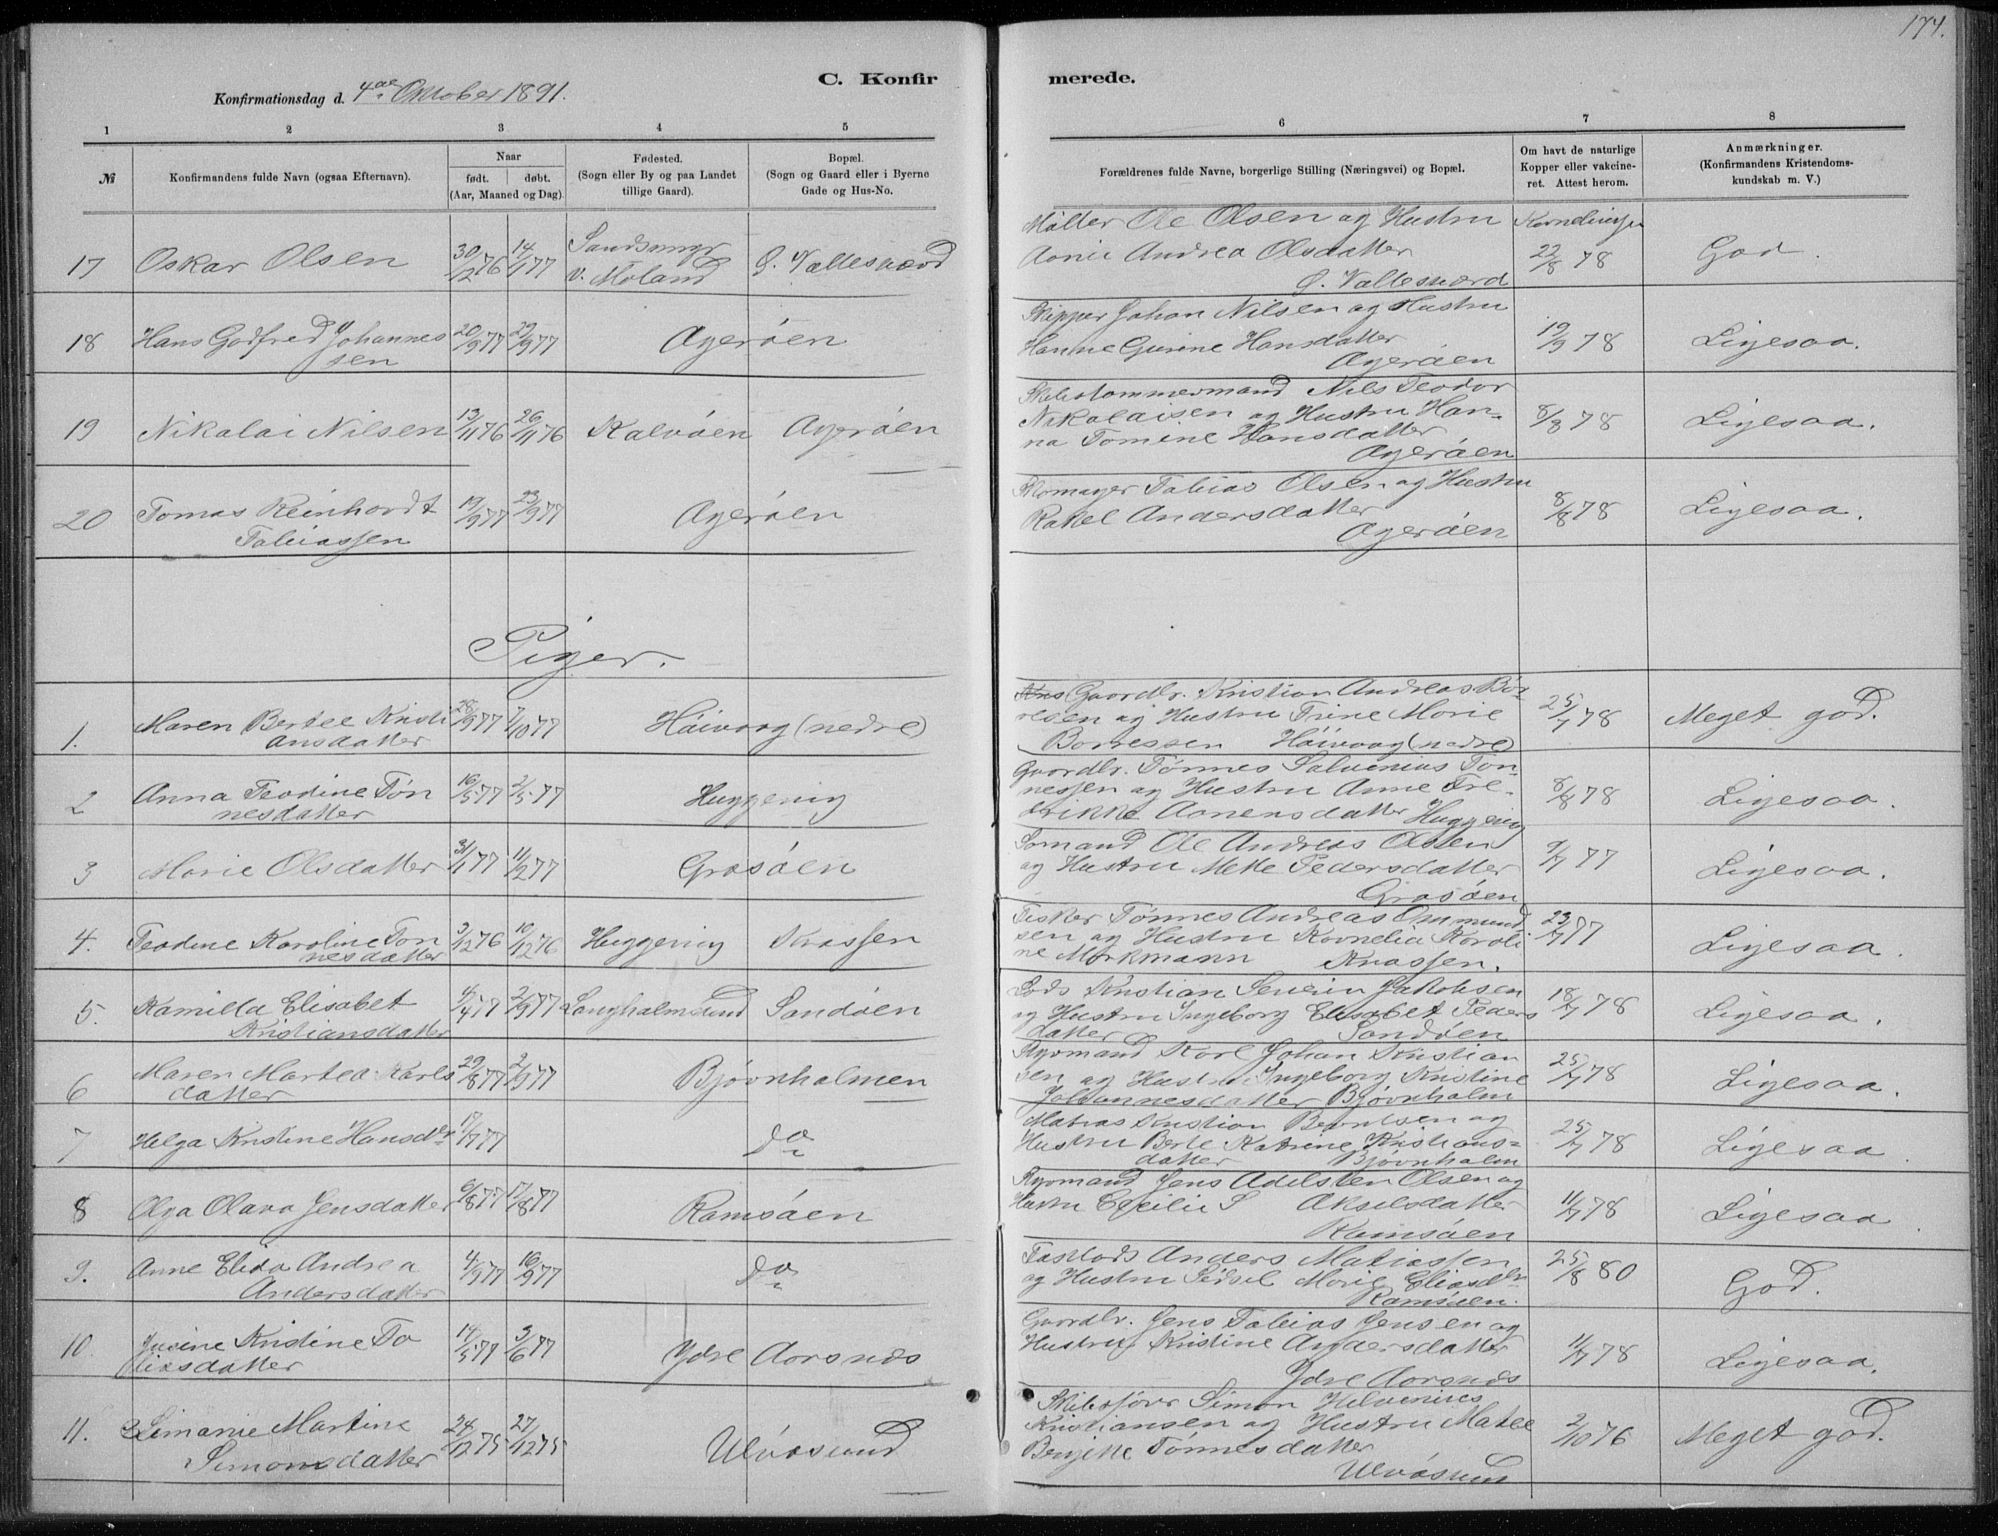 174.
C. Konfir merede.
Konfirmationsdag d. 4de Oktober 1891.
1 2 3 4 5 6 7 8
№ Konfirmandens fulde Navn (ogsaa Efternavn).
Naar
født. døbt.
(Aar, Maaned og Dag).
Fødested.
(Sogn eller By og paa Landet
tillige Gaard).
Bopæl.
(Sogn og Gaard eller i Byerne
Gade og Hus-No.
Forældrenes fulde Navne, borgerlige Stilling (Næringsvei) og Bopæl.
Om havt de naturlige
Kopper eller vakcine-
ret. Attest herom.
Anmærkninger.
(Konfirmandens Kristendoms-
kundskab m. V.)
17 Oskar Olsen 30/12 76 14/1 77
V. Moland Ø. Vallesværd
Møller Ole Olsen og Hustru
Andrea Olsdatter
Ø. Vallesværd
22/8 78 God.
18 Hans Godfred Johannes
sen 20/9 77 29/9 77 Agerøen
Skipper Johan Nilsen og Hustru
Hanne Gurine Hansdatter
Agerøen
19/9 78 Ligesaa.
19 Nikolai Nilsen 13/11 76 26/11 76 Kalvøen Agerøen
Skibstømmermand Nils Teodor
Nikolaisen og Hustru Han-
na Tomine Hansdatter
Agerøen
8/8 78 Ligesaa.
20 Tomas Reinhardt
Tobiassen 19/9 77 23/9 77 Agerøen
Skomager Tobias Olsen og Hustru
Rakel Andersdatter
Agerøen
8/8 78 Ligesaa.
Piger.
1. Maren Bertee Kristi
ansdatter 28/9 77 7/10 77 Høivaag (nedre)
Gaardbr. Kristian Andreas Bør-
resen og Hustru Trine Marie
Børressen Høivaag (nedre)
25/7 78 Meget god.
2 Anna Teodine Tøn
nesdatter 16/5 77 2/5 77 Huggenig
Gaardbr. Tønnes Salvenius Tøn-
nessen og Hustru Anne Fre-
drikke Aanensdatter Huggenig
8/8 78 Ligesaa.
3 Marie Olsdatter 31/1 77 11/2 77 Grasøen
Sømand Ole Andreas Olsen
og Hustru Mette Pedersdatter
Grasøen
9/7 77 Ligesaa.
4. Teodine Karoline Tøn
nesdatter 3/12 76 10/12 76 Huggenig Knassen
Fisker Tønnes Andreas Ommund
sen og Hustru Kornelia Karoli
ne Mørkmann Knassen.
23/7 77 Ligesaa.
5. Kamilla Elisabet
Kristiansdatter 4/4 77 2/9 77 Langholmsund Sandøen
Lods Kristian Severin Jakobsen
og Hustru Ingeborg Elisabet Peders
datter Sandøen
18/7 78 Ligesaa.
6 Maren Martea Karls
datter 29/8 77 2/9 77 Bjørnholmen
Karl Johan Kristian
sen og Hustru Ingeborg Kristine
Johannesdatter Bjørnholm
25/7 78 Ligesaa.
7 Helga Kristine Hansdtr 17/7 77 Do
Matias Kristian Berntsen og
Hustru Berte Katrine Kristians-
datter Bjørnholm
25/7 78 Ligesaa.
8 Olga Olava Jensdatter 6/8 77 17/8 77 Ramsøen
Jens Adelsten Olsen og
Hustru Cecilie S Akselsdatter
Ramsøen
11/7 78 Ligesaa.
9. Anne Elida Andrea
Andersdatter 4/9 77 16/9 77 Do
Fastlods Anders Matiassen
og Hustru Sidsel Marie Eliasdtr
Ramsøen.
25/8 80 God.
10. Jusine Kristine To
biasdatter 14/5 77 3/6 77 Ydre Aarsnes
Gaardbr. Jens Tobias Jensen og
Hustru Kristine Andersdatter
Ydre Aarsnes
11/7 78 Ligesaa.
11. Simanie Martine
Simonsdatter 24/12 75 27/12 75 Ulvøsund
Skibsfører Simon
Kristiansen og Hustru
Bergitte Tønnesdatter
Ulvøsund
2/10 76 Meget god.